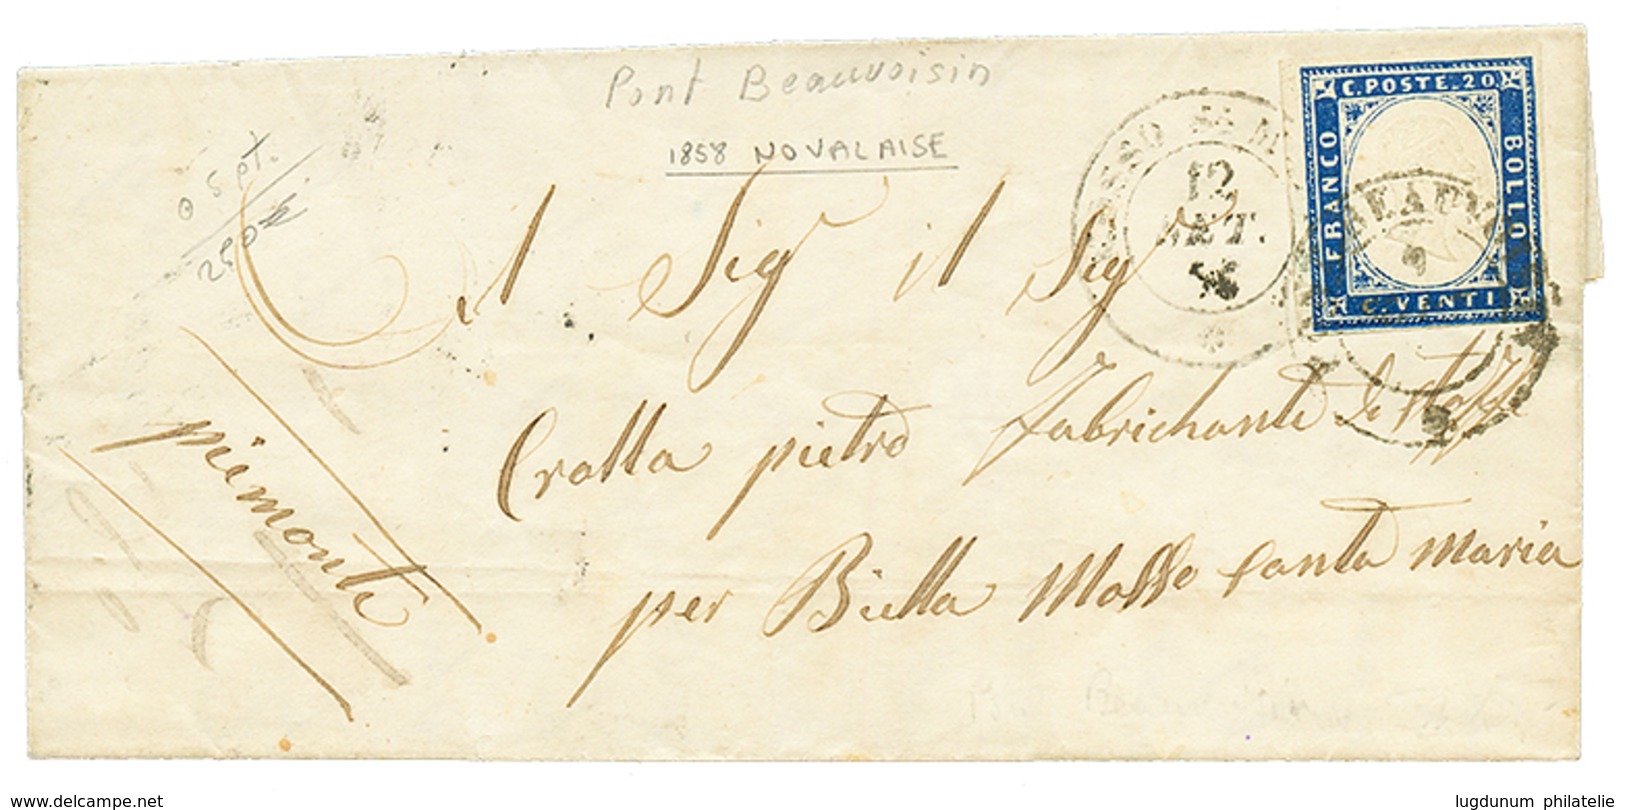 Pont Beauvoisin
1858 NOVALAISE
0 5 pt.
250
C. POSTE. 20
FRANCO
BOLLO
C. VENTI
12
SET.
BEAUV
Al Sigr il Sigr
Cratta pietro fabrichante de
per Biella Mosso Santa Maria
piemonte
Pont Beauvoisin
www.delcampe.net
lugdunum philatelie